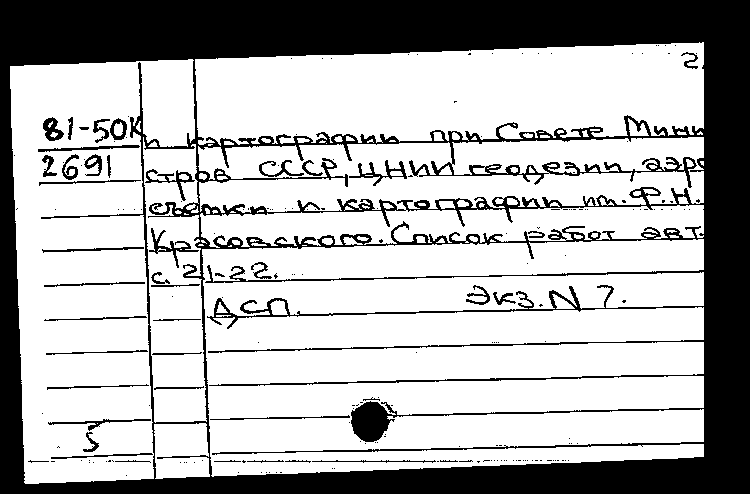 2.
81-50К и картографии при Совете Мини
2691 стров СССР, ЦНИИ геодезии, аэро
съемки и картографии им. Ф.Н.
Красовского. Список работ авт.
с. 21-22.
ДСП. Экз. N 7.
5